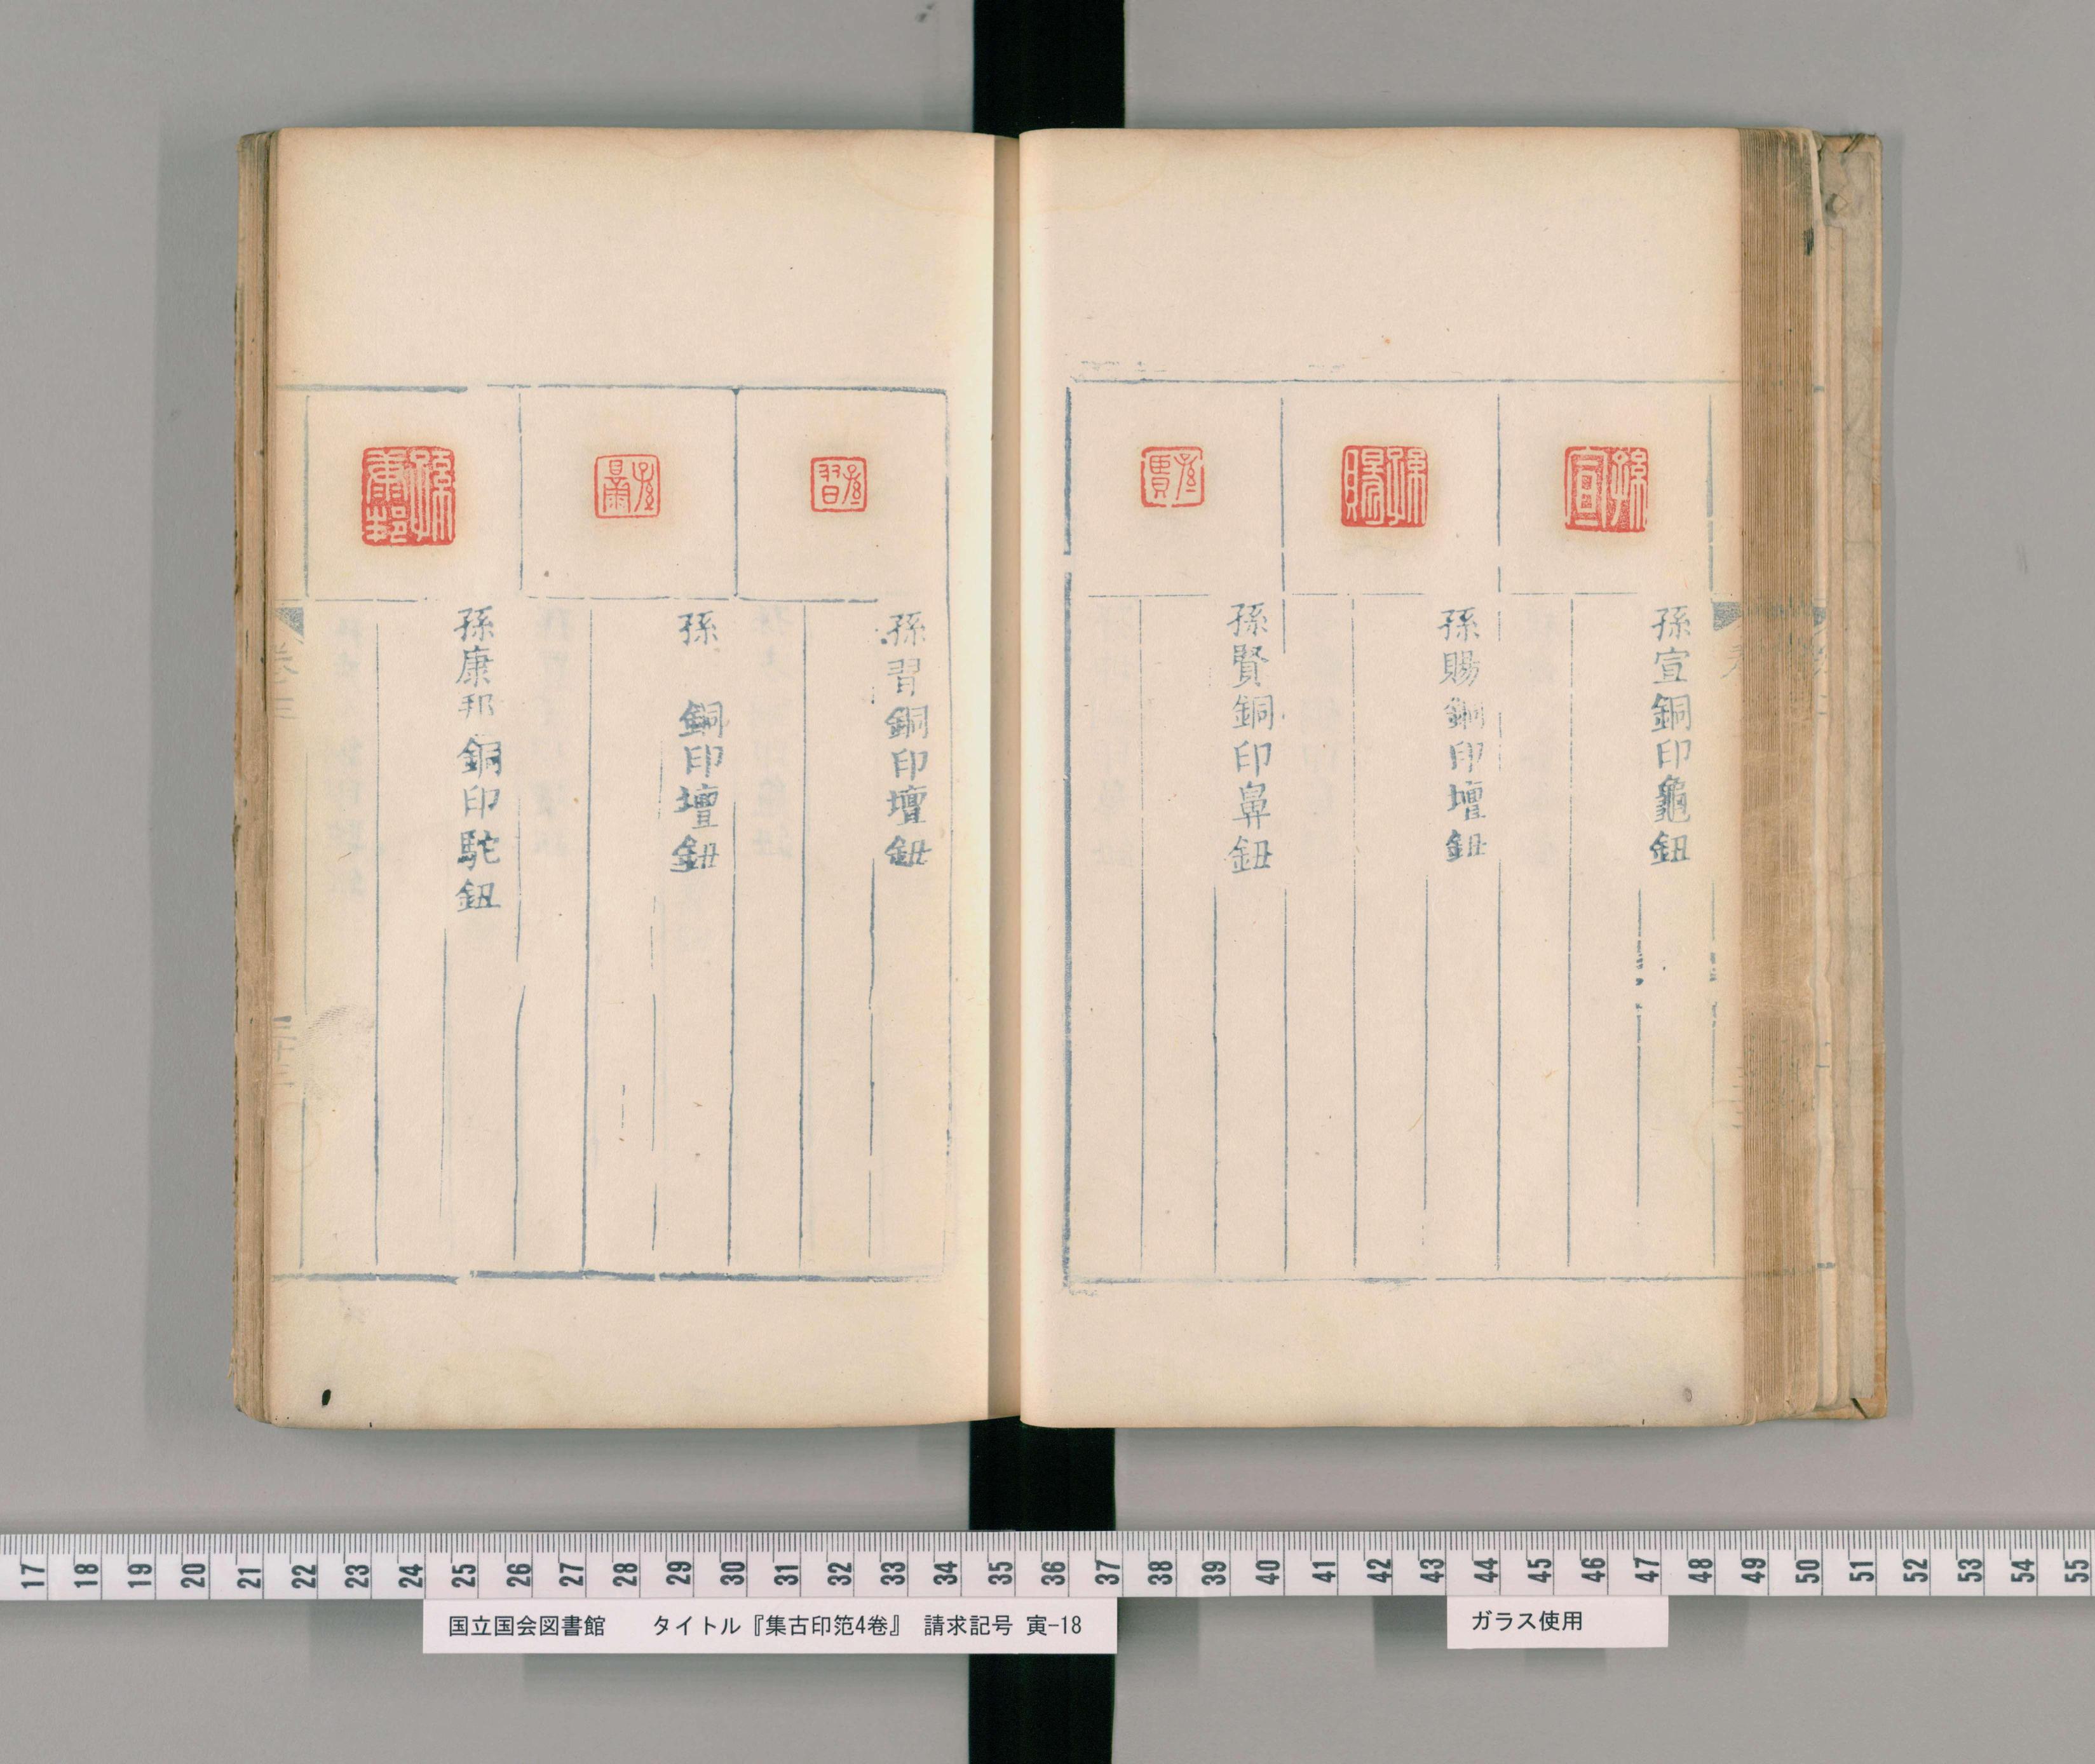 孫宣銅印龜鈕
孫賜銅印壇鈕
孫賢銅印鼻鈕
孫習銅印壇鈕
孫 銅印壇鈕
孫康邦銅印駝鈕
卷三
17 18 19 20 21 22 23 24 25 26 27 28 29 30 31 32 33 34 35 36 37 38 39 40 41 42 43 44 45 46 47 48 49 50 51 52 53 54 55
国立国会図書館 タイトル『集古印笵4巻』 請求記号 寅-18
ガラス使用